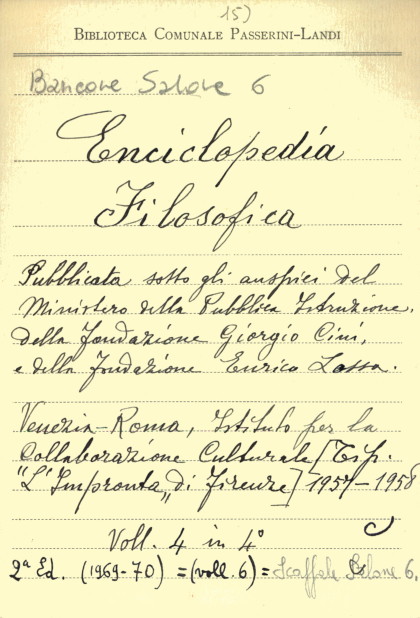 15)
BIBLIOTECA COMUNALE PASSERINI-LANDI
Bancone Salone 6
Enciclopedia
Filosofica
Pubblicata sotto gli auspici del
Ministero della Pubblica Istruzione,
della Fondazione Giorgio Cini,
e della fondazione Enrico Lossa.
Venezia-Roma, Istituto per la
Collaborazione Culturale [Tip.
"L'Impronta„ di Firenze] 1957-1958
Voll. 4 in 4°
2ª Ed. (1969-70) = (voll. 6) = Scaffale Salone 6.